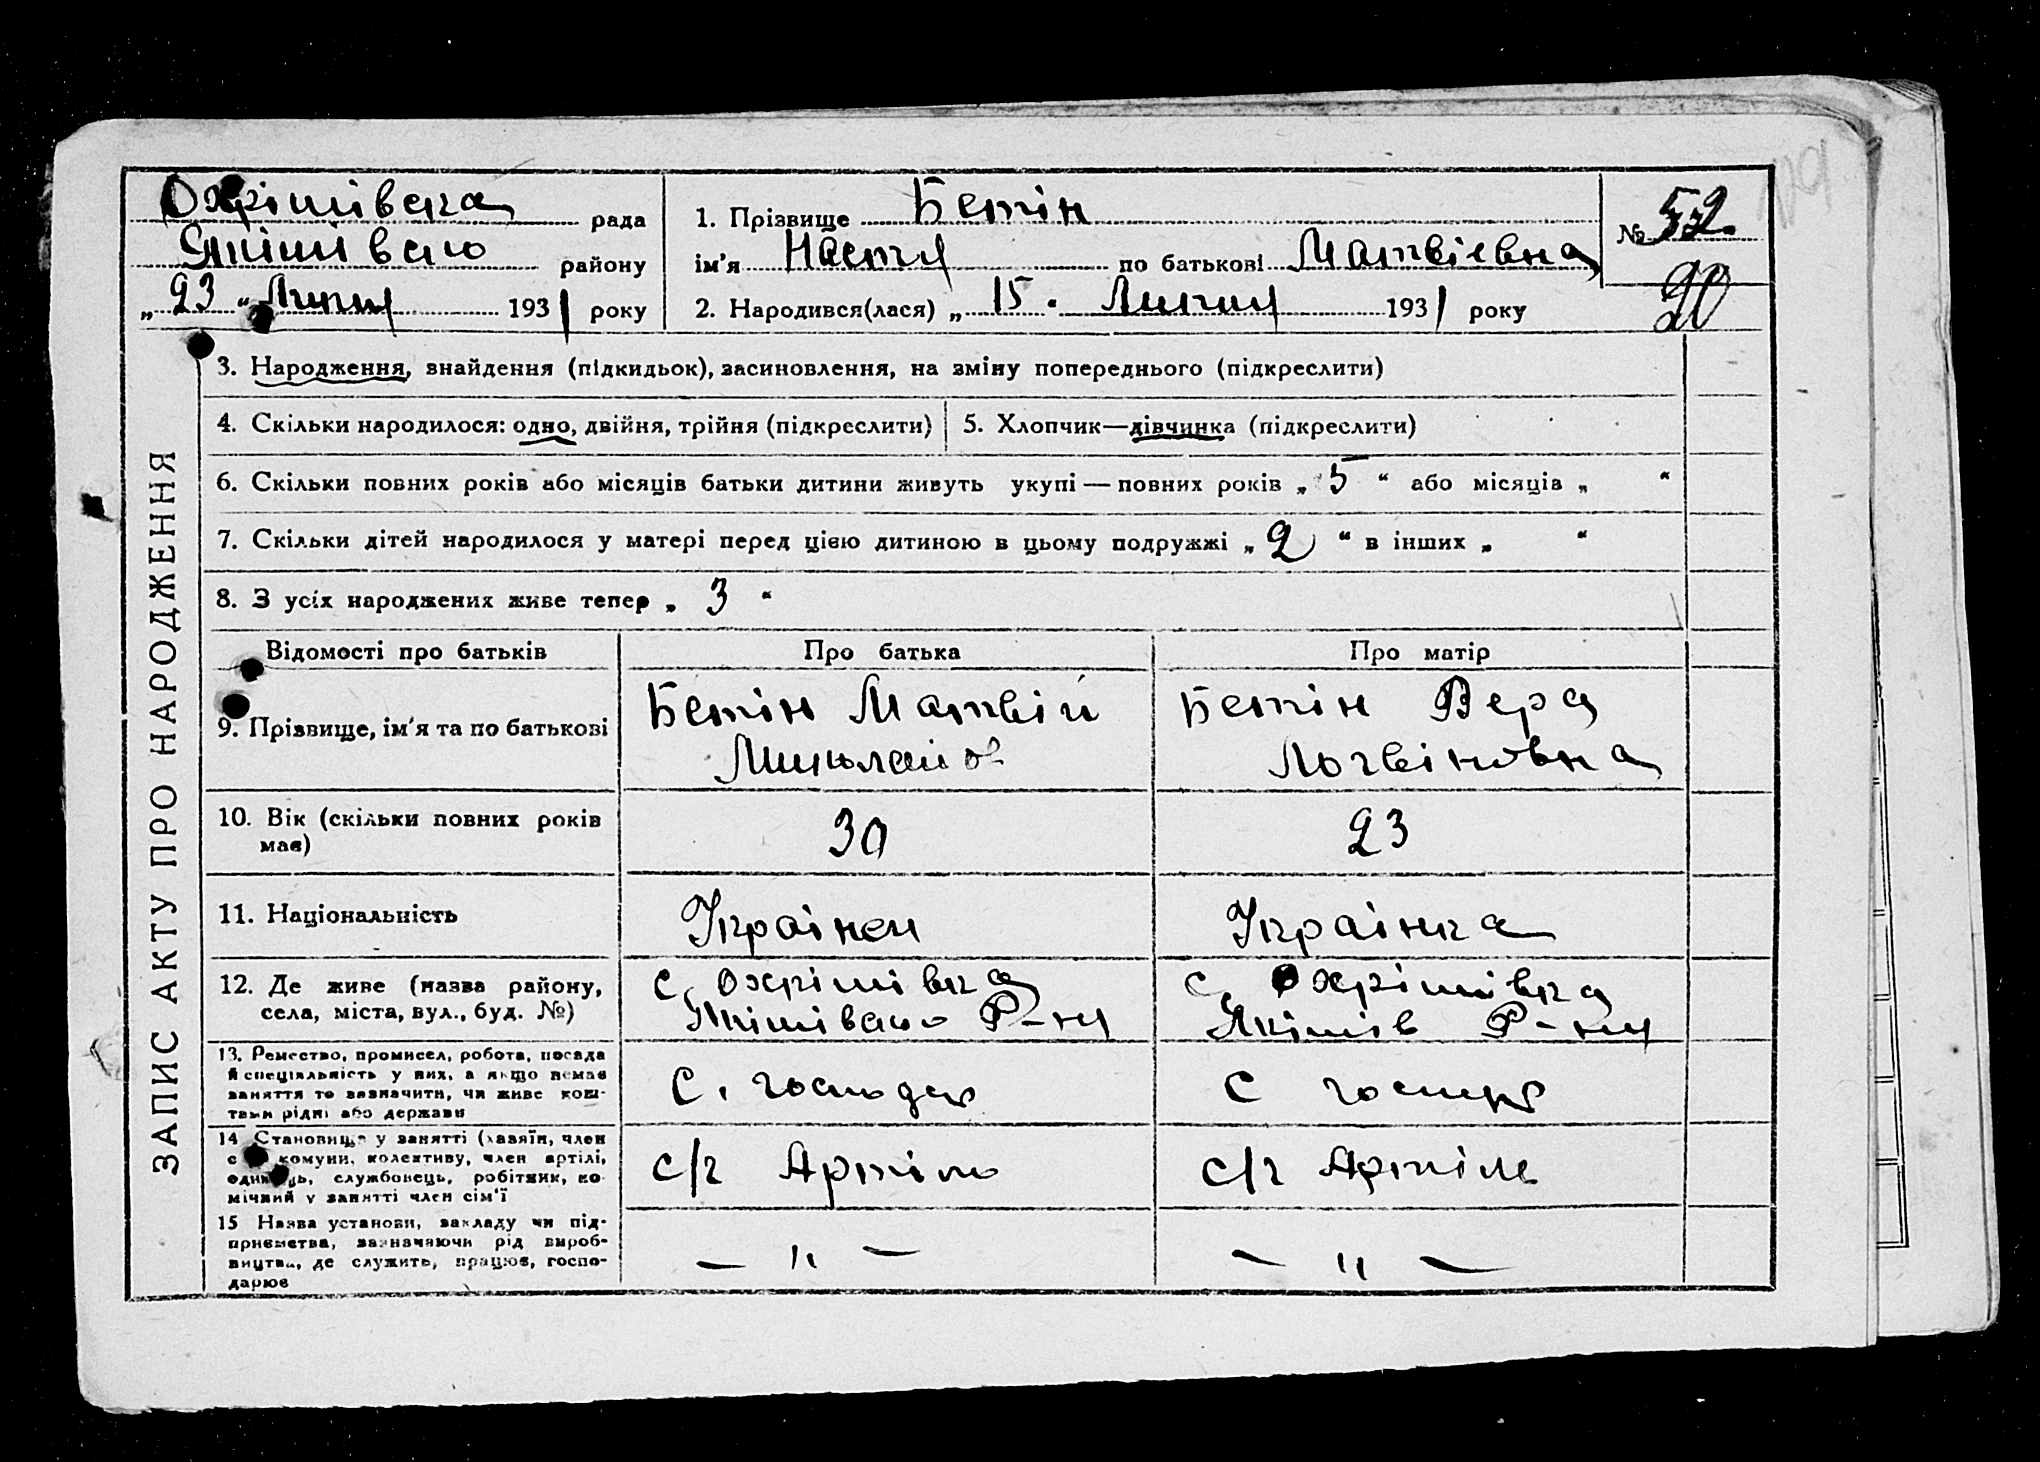 Охрімівська рада
Якімівсько району
„ 23 “ Липня 1931 року
1. Прізвище Бетін
ім'я Настя по батькові Матвіевна
2. Народився(лася) „ 15 . Липня 1931 року
№ 52.
20
ЗАПИС АКТУ ПРО НАРОДЖЕННЯ
3. Народження, знайдення (підкидьок), засиновлення, на зміну попереднього (підкреслити)
4. Скільки народилося: одно, двійня, трійня (підкреслити)
5. Хлопчик—дівчинка (підкреслити)
6. Скільки повних років або місяців батьки дитини живуть укупі — повних років „ 5 “ або місяців „ “
7. Скільки дітей народилося у матері перед цією дитиною в цьому подружжі „ 2 “ в інших „ “
8. З усіх народжених живе тепер „ 3 “
Відомості про батьків Про батька Про матір
9. Прізвище, ім'я та по батькові
Бетін Матвій
Миколайов
Бетін Вера
Логвіновна
10. Вік (скільки повних років
має)
30
23
11. Національність
Украінец
Украінка
12. Де живе (назва району,
села, міста, вул., буд. №)
с. Охрімівка
Якімівсько Р-ну
с. Охрімівка
Якімів Р-ну
13. Ремество, промисел, робота, посада
й спеціяльність у них, а якщо немає
заняття то зазначити, чи живе кош-
тами рідні або держави
С. господар
С господар
14 Становище у занятті (хазяїн, член
с комуни, колективу, член артілі,
одинець, службовець, робітник, по-
мічний у занятті член сім'ї
с/г Артіль
с/г Артіль
15 Назва установи, закладу чи під-
приємства, зазначаючи рід вироб-
ництва, де служить, працює, госпо-
дарює
— " —
— " —